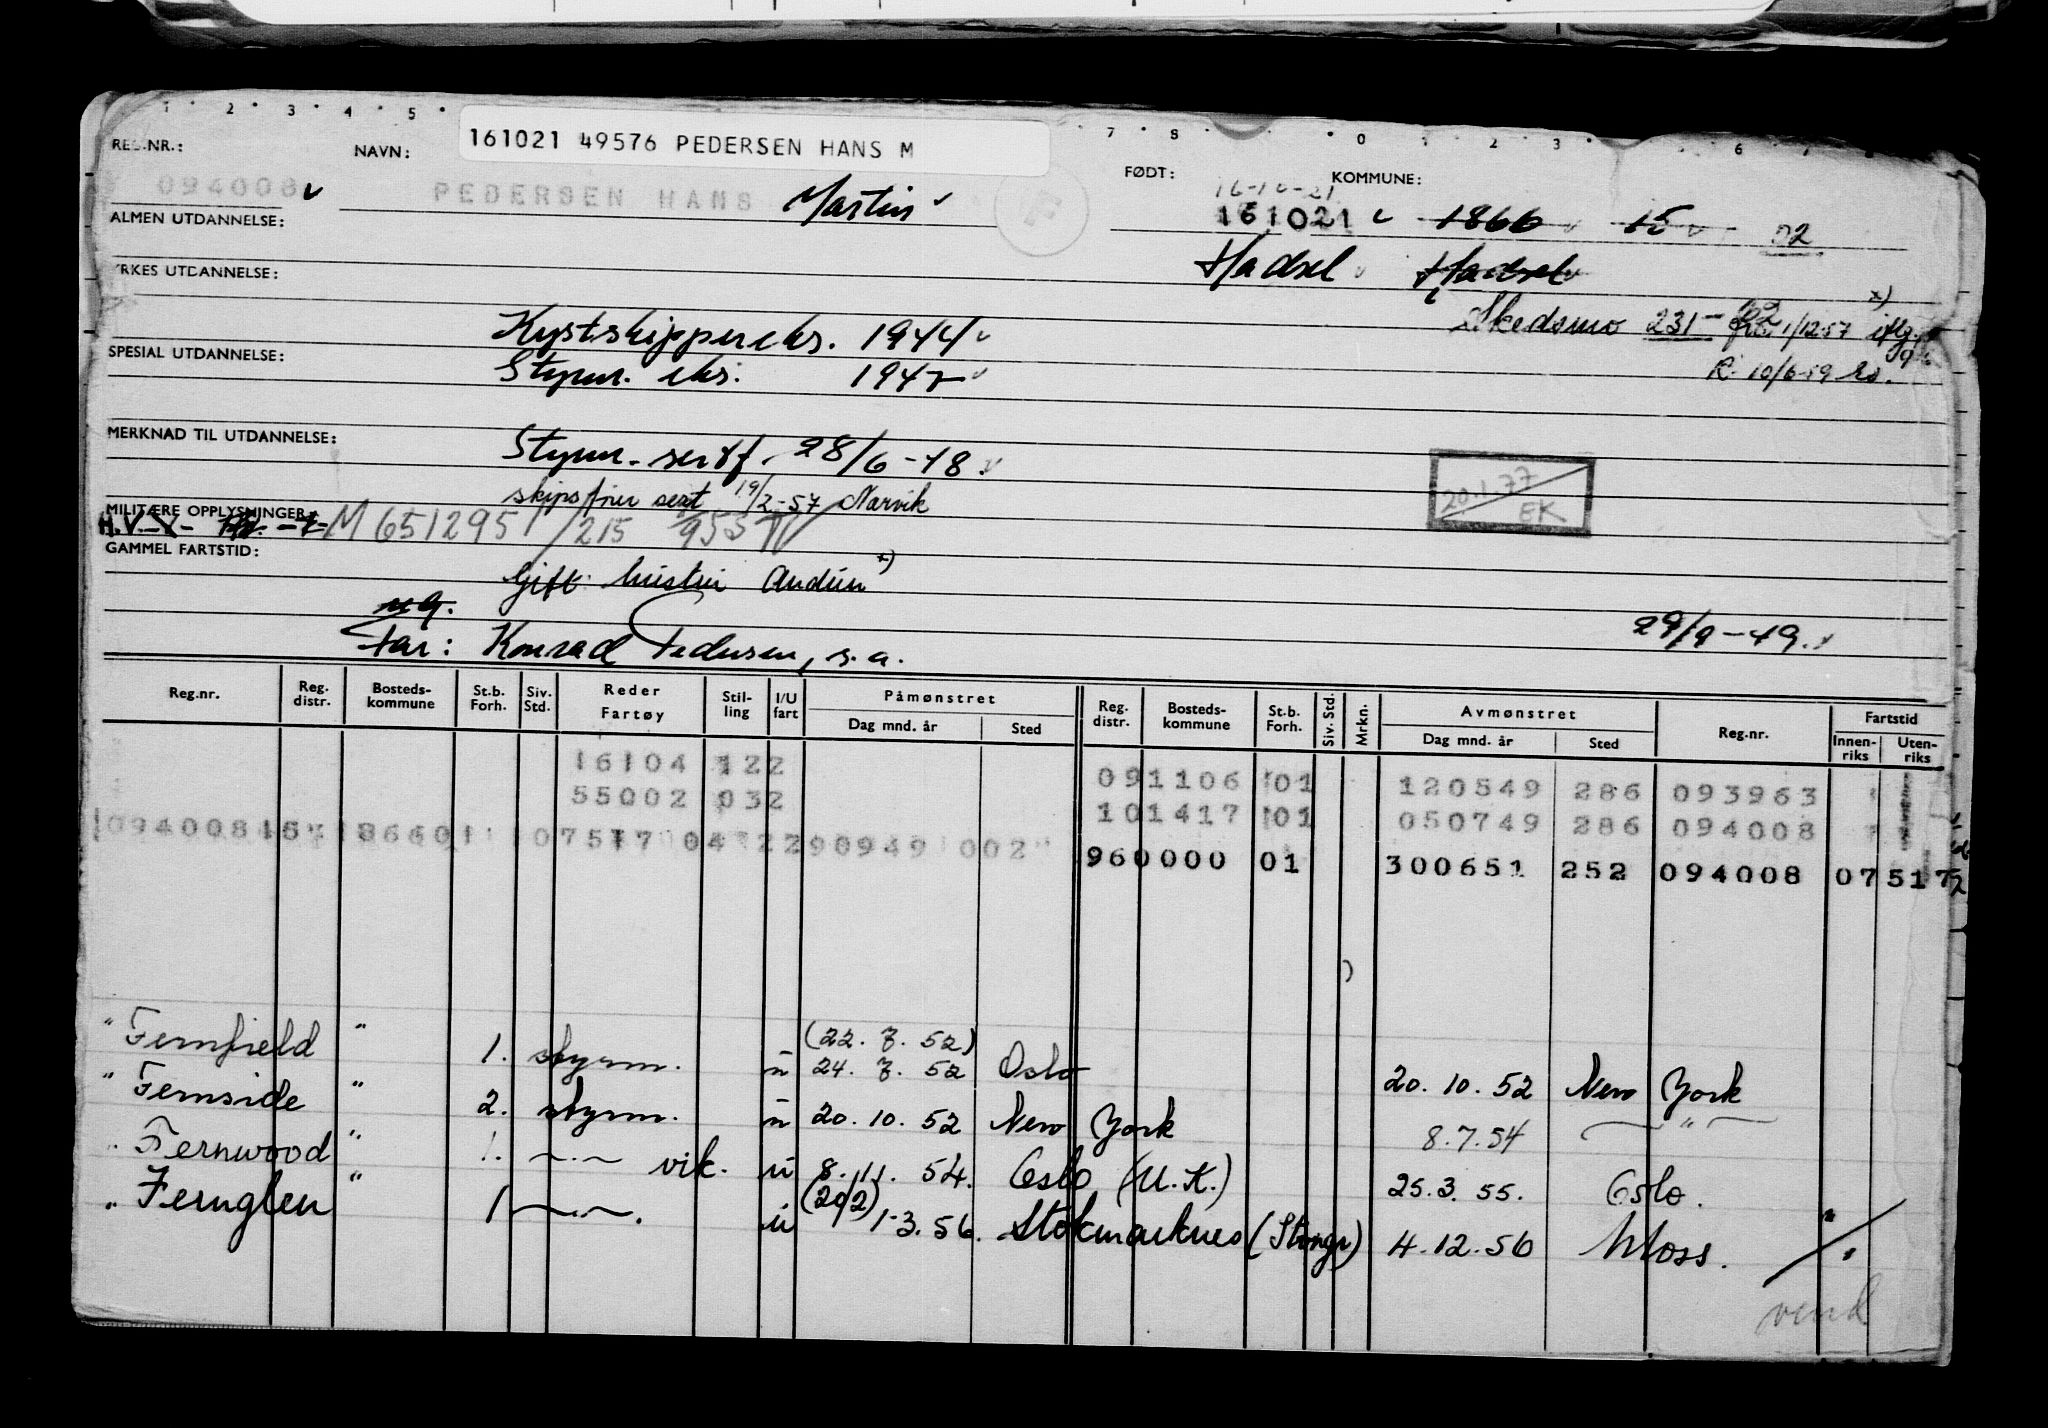 161021 49576 PEDERSEN HANS M
REG.NR.: NAVN: FØDT: KOMMUNE:
16-10-21
094008 PEDERSEN HANS Martin 161021 1866 15 02
F
ALMEN UTDANNELSE:
Hadsel Hadsel
YRKES UTDANNELSE:
Kystskippereks. 1944 Skedsmo 231 - 1/12-57 iflg.
SPESIAL UTDANNELSE:
Styrm. eks. 1947 R. 10/6-59
MERKNAD TIL UTDANNELSE:
Styrm. sertf. 28/6-48.
skipsfører sert 19/2-57 Narvik
20.1.77
EK
MILITÆRE OPPLYSNINGER:
H.V. M 651295/215
GAMMEL FARTSTID:
Gift: hustru Audun x)
ug.
Far: Konrad Pedersen, s.a. 29/9-49.
Reg.nr. Reg. distr. Bosteds-kommune St.b. Forh. Siv. Std. Reder Fartøy Stil-ling I/U fart Påmønstret Dag mnd. år Sted Reg. distr. Bosteds-kommune St.b. Forh. Siv. Std. Mrkn. Avmønstret Dag mnd. år Sted Reg.nr. Fartstid Innen-riks Uten-riks
16104 122 091106 01 120549 286 093963
55002 032 101417 01 050749 286 094008
094008 15 1866 01 07517 04 22 90949 002 960000 01 300651 252 094008 07517
" Fernfield " 1. styrm. u (22. 7. 52) 24. 7. 52 Oslo 20. 10. 52 New York
" Fernside " 2. styrm. u 20. 10. 52 New York 8.7.54 — " —
" Fernwood " 1. —"— vik. u 8. 11. 54. Oslo (U.K.) 25. 3. 55. Oslo.
" Fernglen " 1 —"—. u (20/2) 1-3.56. Stokmarknes (Stongr) 4.12.56 Moss.
vend